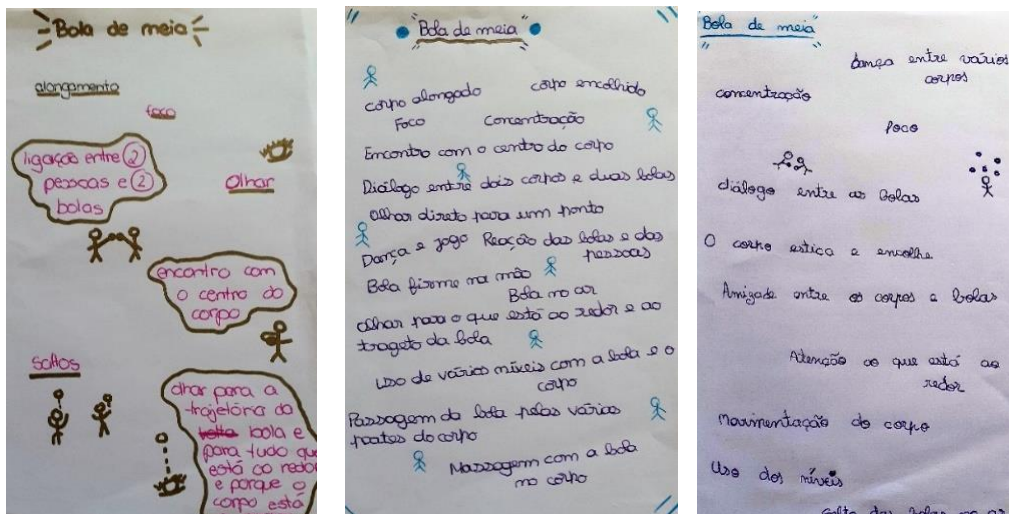 Bola de meia
alongamento
foco
ligação entre 2
pessoas e 2
bolas
Olhar
encontro com
o centro do
corpo
Saltos
olhar para a
trajetória da
bola e
para tudo que
está ao redor
e porque o
corpo está
Bola de meia
corpo alongado corpo encolhido
Foco Concentração
Encontro com o centro do corpo
Diálogo entre dois corpos e duas bolas
Olhar direto para um ponto
Dança e jogo Reação das bolas e das
pessoas
Bola firme na mão
Bola no ar
olhar para o que está ao redor e ao
trageto da bola
Uso de vários níveis com a bola e o
corpo
Passagem da bola pelas várias
partes do corpo
Massagem com a bola
no corpo
Bola de meia
dança entre vários
corpos
concentração
foco
diálogo entre as bolas
O corpo estica e encolhe
Amizade entre os corpos e bolas
Atenção ao que está ao
redor
movimentação do corpo
Uso dos níveis
das bolas no ar